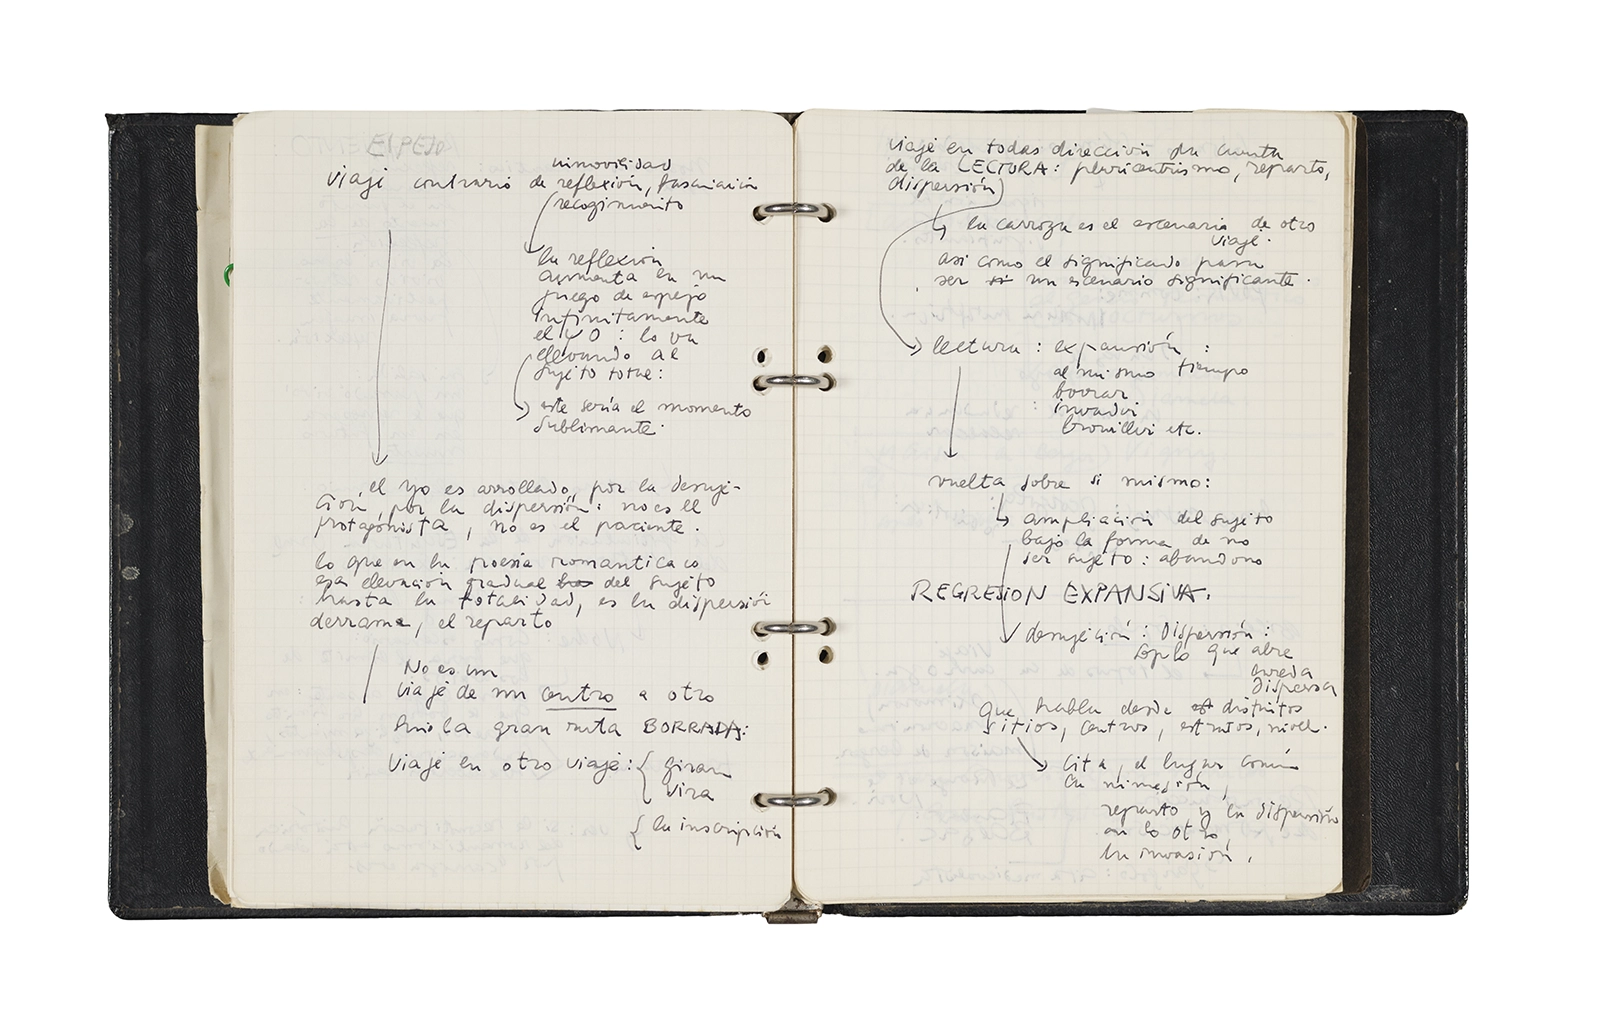 ESPEJO
inmovilidad
viaje contrario de reflexión, fascinación
recogimiento
la reflexión
aumenta en un
juego de espejo
infinitamente
el YO : lo va
elevando al
sujeto total:
este sería el momento
sublimante.
el yo es arrollado, por la desuje-
ción, por la dispersión: no es el
protagonista, no es el paciente.
lo que en la poesía romantica es
esa elevación gradual del sujeto
hasta la totalidad, es la dispersión
derrame, el reparto
No es un
viaje de un centro a otro
sino la gran ruta BORRADA:
viaje en otro viaje: { giran
vira
{ la inscripción
viaje en todas dirección da cuenta
de la LECTURA: pluricentrismo, reparto,
dispersión)
la carroza es el escenario de otro
viaje.
asi como el significado pasa
ser un escenario significante.
lectura : expansión :
al mismo tiempo
borrar
: invadir
brouiller etc.
vuelta sobre si mismo:
ampliación del sujeto
bajo la forma de no
ser sujeto: abandono
REGRESION EXPANSIVA.
desujeción: Dispersión:
soplo que abre
enreda
dispersa
que habla desde distintos
sitios, centros, estratos, nivel.
cita, el lugar común
la
reparto y la dispersión
en lo otro
la invasión.